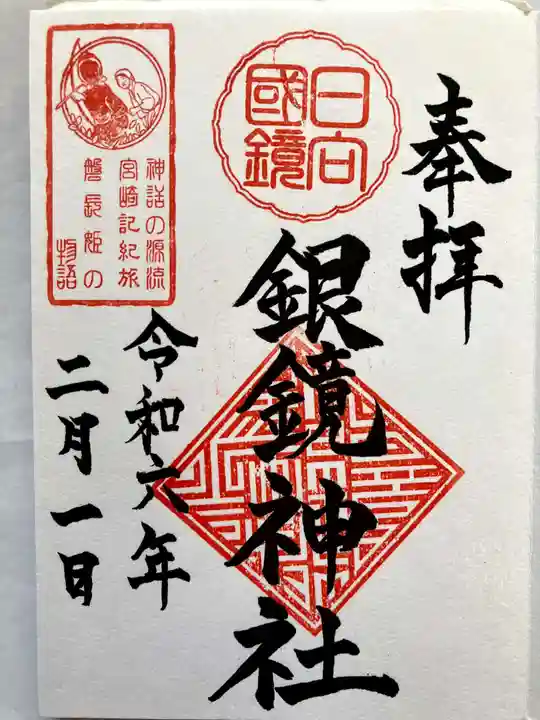 奉拝
日向
國鏡
銀鏡神社
令和六年
二月一日
神話の源流
宮崎記紀旅
磐長姫の
物語